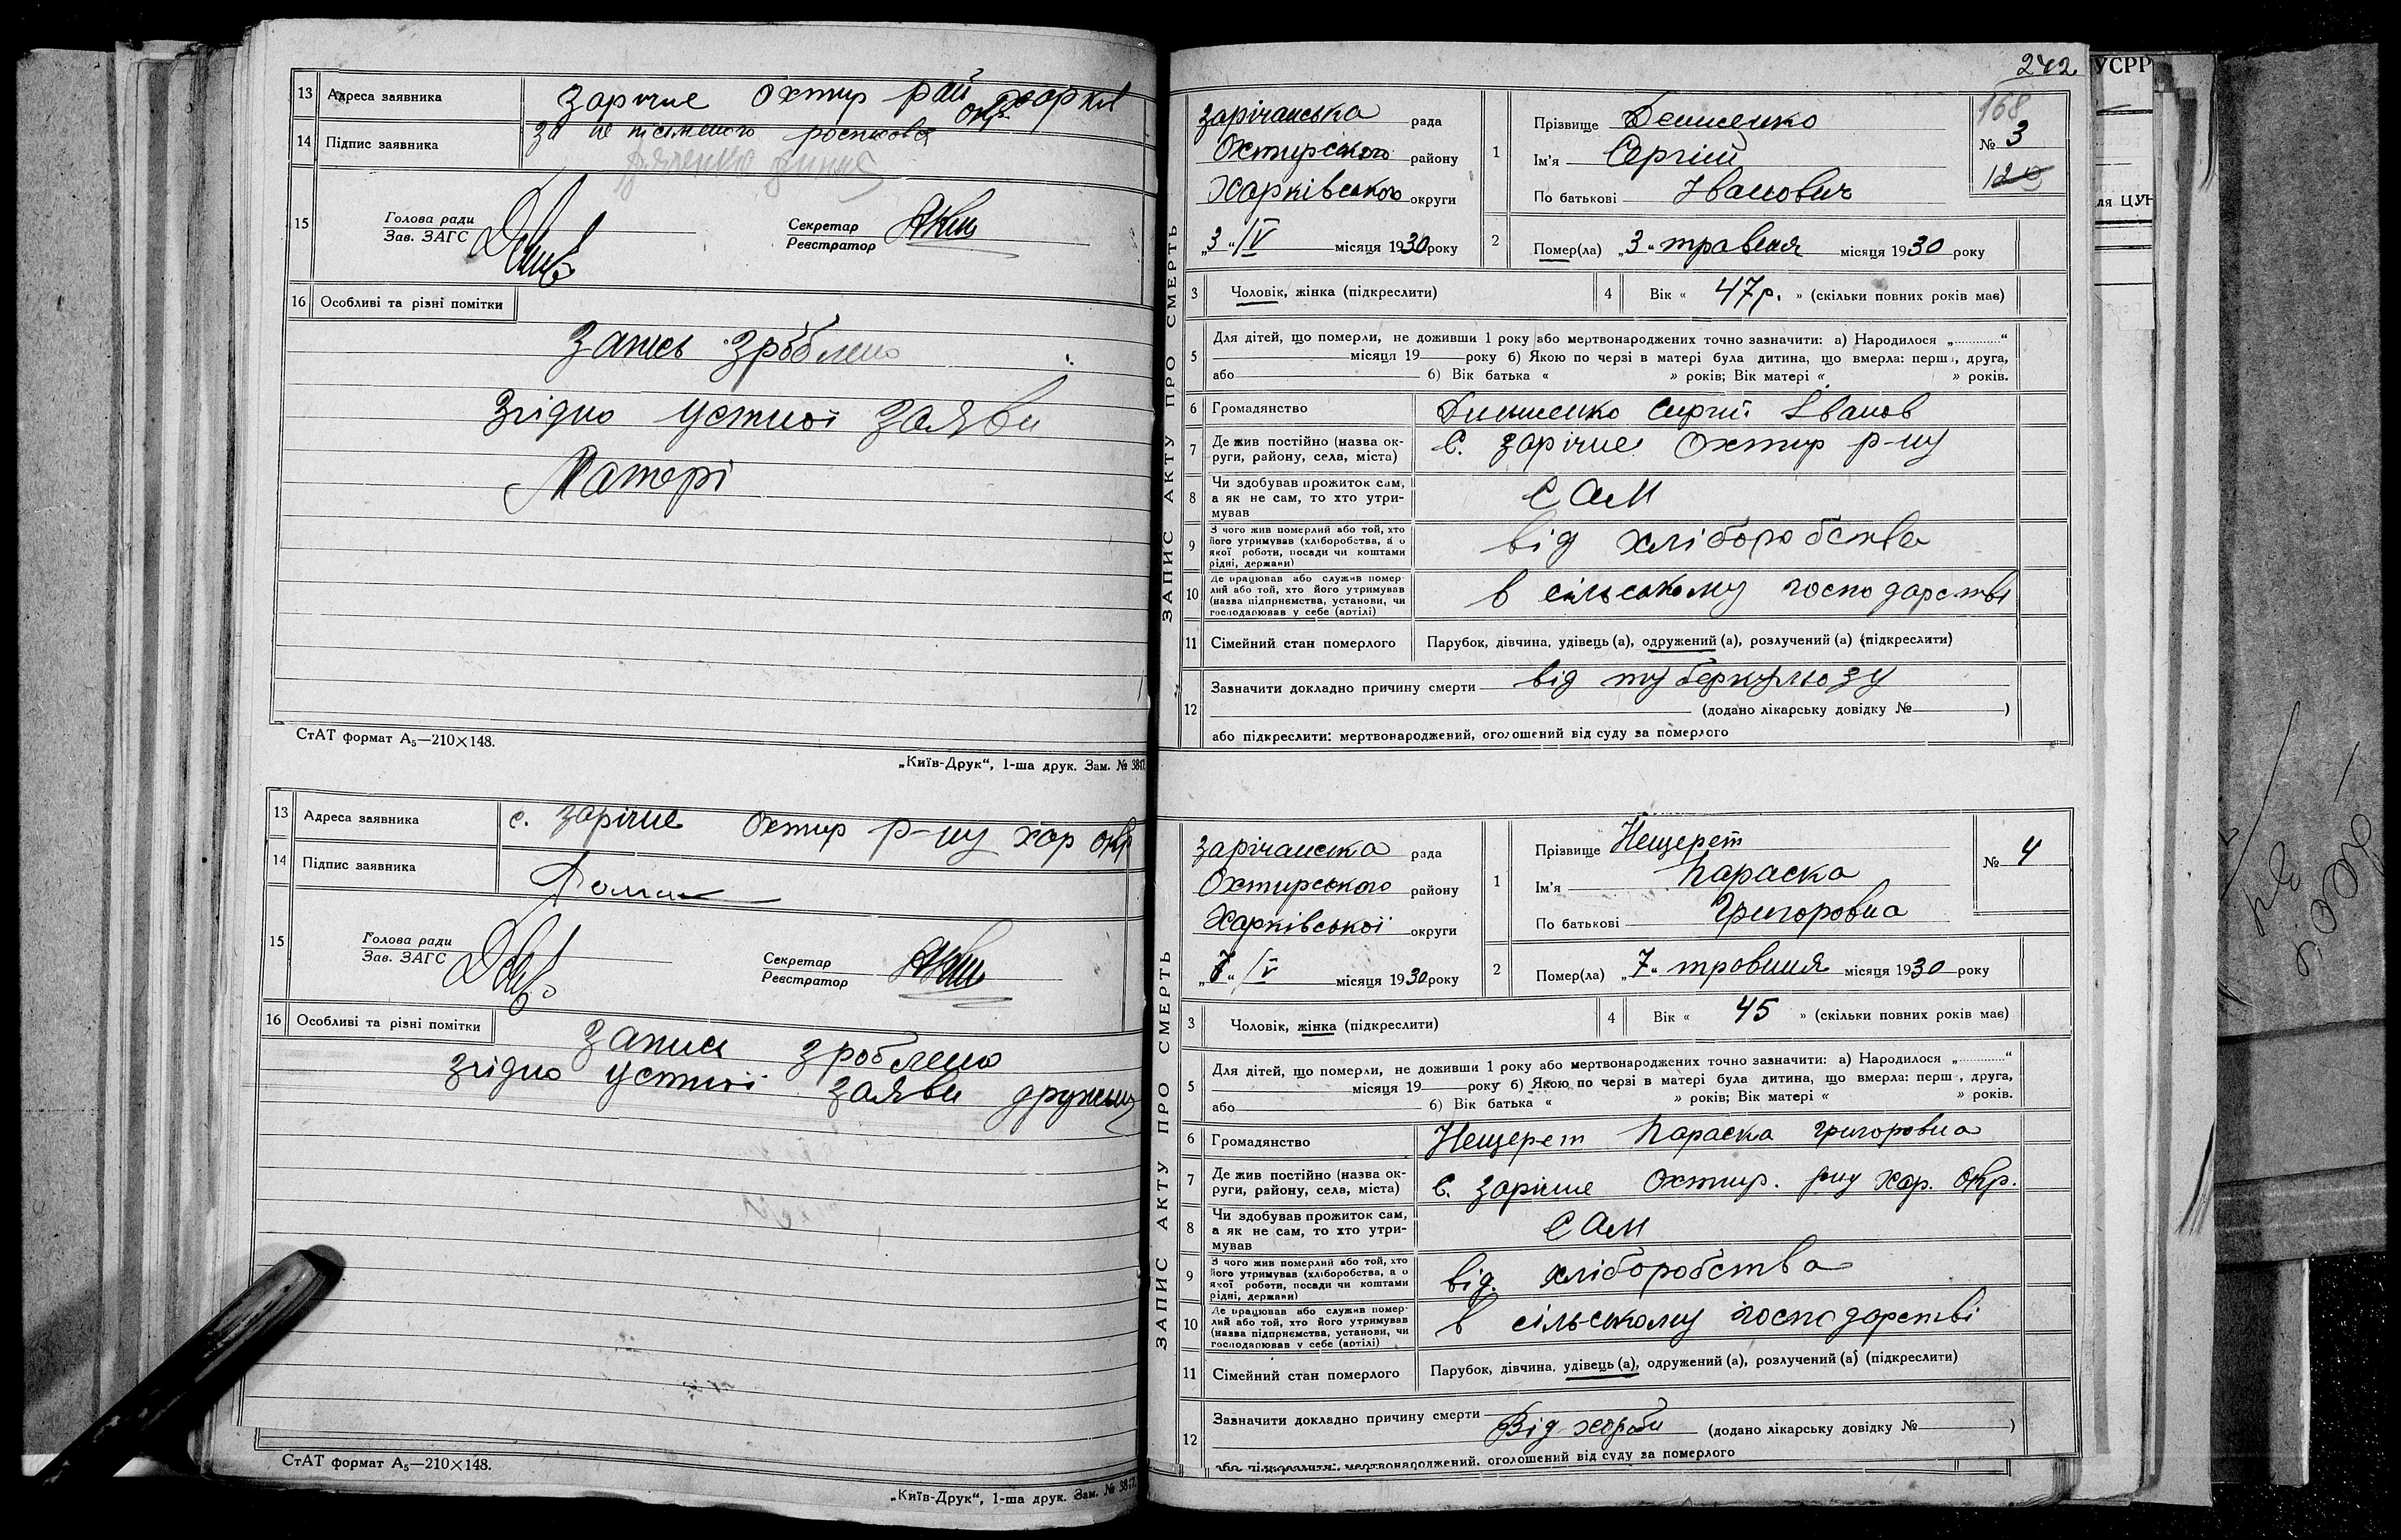 13 Адреса заявника Зарічне Охтир рай Харків
окр.
14 Підпис заявника за не письменого росписався
15 Голова ради
Зав. ЗАГС
Секретар
Реєстратор
16 Особливі та різні помітки
Запись зроблено
Згідно устної заяви
Матері
СтАТ формат А5—210×148.
„Київ-Друк“, 1-ша друк. Зам. № 3847.
13 Адреса заявника с. Зарічне Охтир р-ну Хар окр
14 Підпис заявника
15 Голова ради
Зав. ЗАГС
Секретар
Реєстратор
16 Особливі та різні помітки
Запись зроблено
Згідно устної заяви дружины
СтАТ формат А5—210×148.
„Київ-Друк“, 1-ша друк. Зам. № 3847.
242
УСРР
ля ЦУН
ЗАПИС АКТУ ПРО СМЕРТЬ
Зарічанська рада
Охтирського району
Харківського округи
„3“ IV місяця 1930 року
1 Прізвище Денисенко
Ім'я Сергій
По батькові Іванович
168
№ 3
120
2 Помер(ла) „3“ травня місяця 1930 року
3 Чоловік, жінка (підкреслити)
4 Вік « 47р. » (скільки повних років має)
5 Для дітей, що померли, не доживши 1 року або мертвонароджених точно зазначити: а) Народилося „............“
місяця 19 року б) Якою по черзі в матері була дитина, що вмерла: перша, друга,
або б) Вік батька « » років; Вік матері « » років.
6 Громадянство Динисенко Сиргій Іванов
7 Де жив постійно (назва округи, району, села, міста) С. Зарічне Охтир р-ну
8 Чи здобував прожиток сам, а як не сам, то хто утримував сам
9 З чого жив померлий або той, хто його утримував (хліборобства, з якої роботи, посади чи коштами рідні, держави) від хліборобства
10 Де працював або служив померлий або той, хто його утримував (назва підприємства, установи, чи господарював у себе (артілі) в сільському господарстві
11 Сімейний стан померлого Парубок, дівчина, удівець (а), одружений (а), розлучений (а) (підкреслити)
12 Зазначити докладно причину смерти від туберкульозу
(додано лікарську довідку № )
або підкреслити: мертвонароджений, оголошений від суду за померлого
ЗАПИС АКТУ ПРО СМЕРТЬ
Зарічанська рада
Охтирського району
Харківської округи
„7“ IV місяця 1930 року
1 Прізвище Нещерет
Ім'я Параска
По батькові Григоровна
№ 4
2 Помер(ла) „7“ тровння місяця 1930 року
3 Чоловік, жінка (підкреслити)
4 Вік « 45 » (скільки повних років має)
5 Для дітей, що померли, не доживши 1 року або мертвонароджених точно зазначити: а) Народилося „............“
місяця 19 року б) Якою по черзі в матері була дитина, що вмерла: перш, друга,
або б) Вік батька « » років; Вік матері « » років.
6 Громадянство Нещерет Параска Григоровна
7 Де жив постійно (назва округи, району, села, міста) С. Зарічне Охтир. рну Хар. Окр.
8 Чи здобував прожиток сам, а як не сам, то хто утримував сам
9 З чого жив померлий або той, хто його утримував (хліборобства, з якої роботи, посади чи коштами рідні, держави) від. хліборобства
10 Де працював або служив померлий або той, хто його утримував (назва підприємства, установи, чи господарював у себе (артілі) в сільському господарстві
11 Сімейний стан померлого Парубок, дівчина, удівець (а), одружений (а), розлучений (а) (підкреслити)
12 Зазначити докладно причину смерти Від хороби (додано лікарську довідку № )
або підкреслити: мертвонароджений, оголошений від суду за померлого